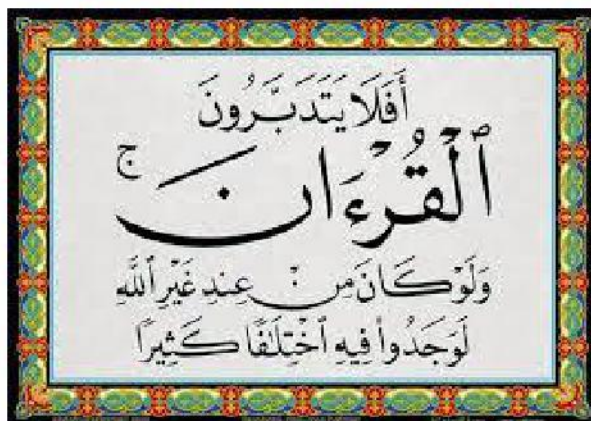 أَفَلَا يَتَدَبَّرُونَ
ٱلْقُرْءَانَ ۚ
وَلَوْ كَانَ مِنْ عِندِ غَيْرِ ٱللَّهِ
لَوَجَدُوا۟ فِيهِ ٱخْتِلَٰفًا كَثِيرًا